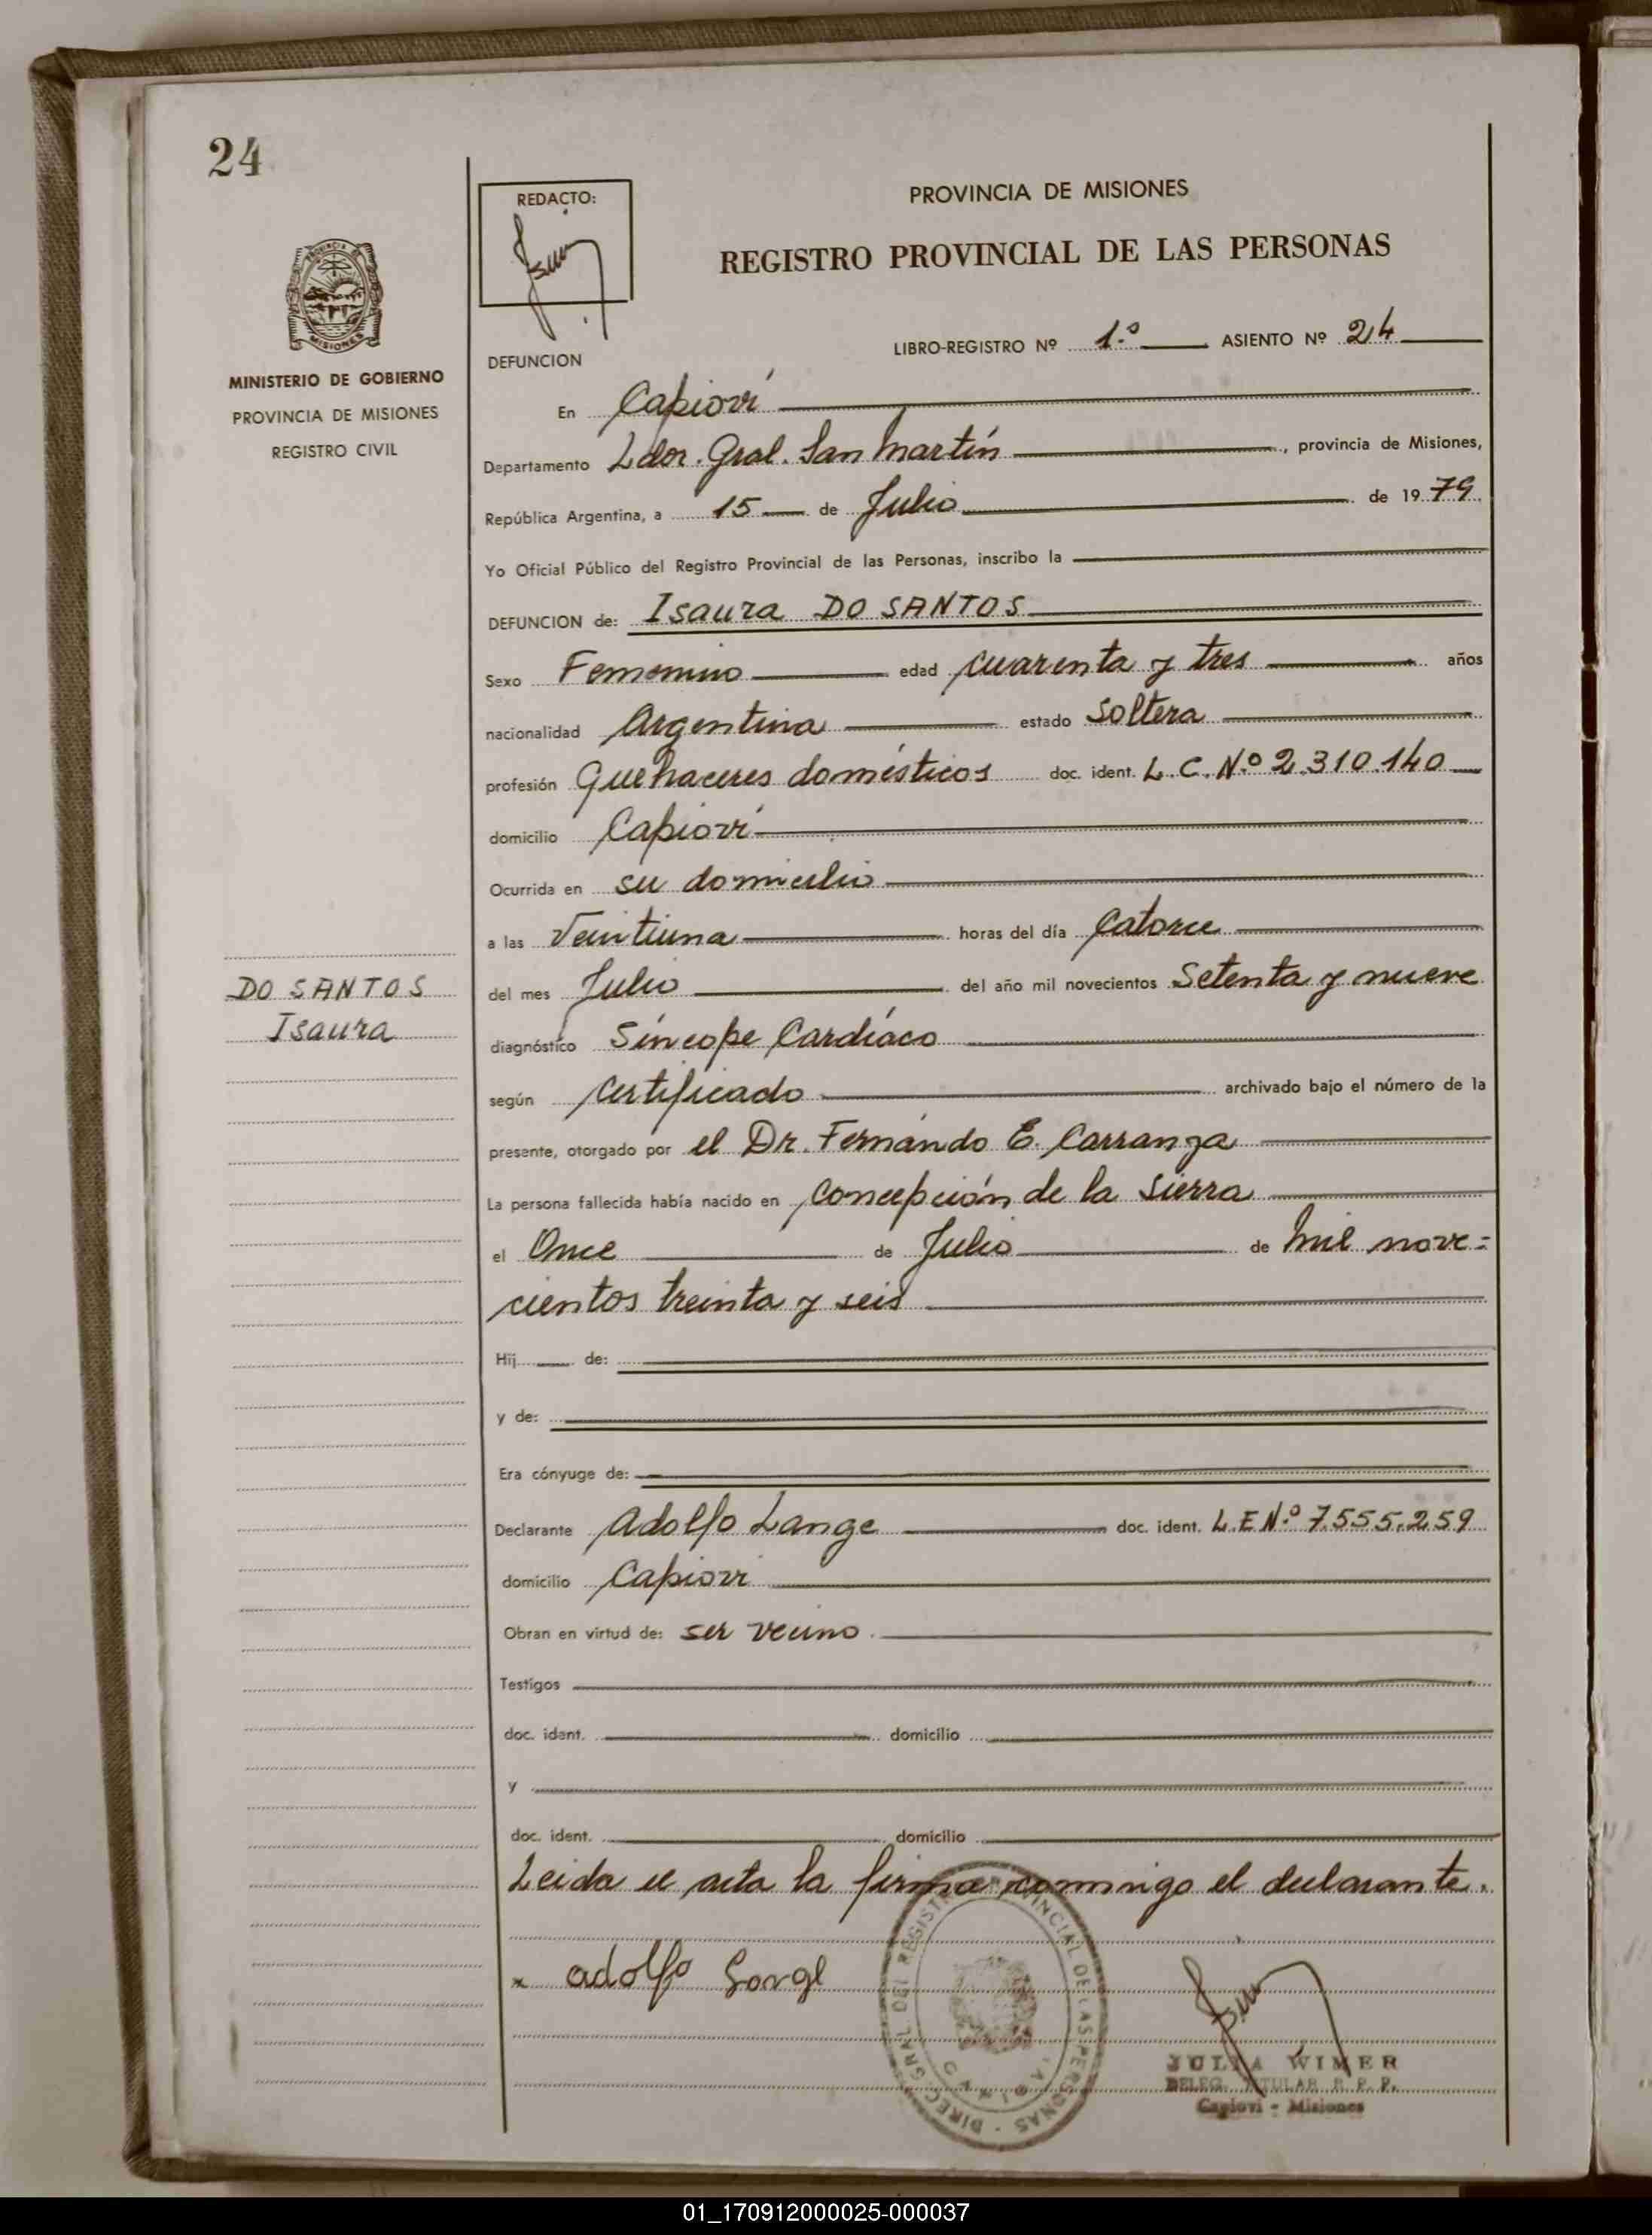 24
REDACTO:
PROVINCIA DE MISIONES
REGISTRO PROVINCIAL DE LAS PERSONAS
PROVINCIA
MISIONES
MINISTERIO DE GOBIERNO
PROVINCIA DE MISIONES
REGISTRO CIVIL
LIBRO-REGISTRO Nº 1.º ASIENTO Nº 24
DEFUNCION
En Capioví
Departamento Ldor. Gral. San Martín, provincia de Misiones,
República Argentina, a 15 de Julio de 1979
Yo Oficial Público del Registro Provincial de las Personas, inscribo la
DEFUNCION de: Isaura DO SANTOS
Sexo Femenino edad cuarenta y tres años
nacionalidad Argentina estado Soltera
profesión Quehaceres domésticos doc. ident. L.C.N.º 2.310.140
domicilio Capioví
Ocurrida en su domicilio
a las Veintiuna horas del día Catorce
DO SANTOS
Isaura
del mes Julio del año mil novecientos Setenta y nueve
diagnóstico Síncope Cardíaco
según Certificado archivado bajo el número de la
presente, otorgado por el Dr. Fernándo E. Carranza
La persona fallecida había nacido en Concepción de la Sierra
el Once de Julio de Mil nove=
cientos treinta y seis
Hij de:
y de:
Era cónyuge de:
Declarante Adolfo Lange doc. ident. L.E.N.º 7.555.259
domicilio Capiovi
Obran en virtud de: ser vecino.
Testigos
doc. ident. domicilio
y
doc. ident. domicilio
Leida el acta la firma conmigo el declarante.
x adolfo
DIREC. GRAL. DEL REGISTRO PROVINCIAL DE LAS PERSONAS
JULIA WIMER
DELEG. TITULAR R. P. P.
Capiovi - Misiones
01_170912000025-000037